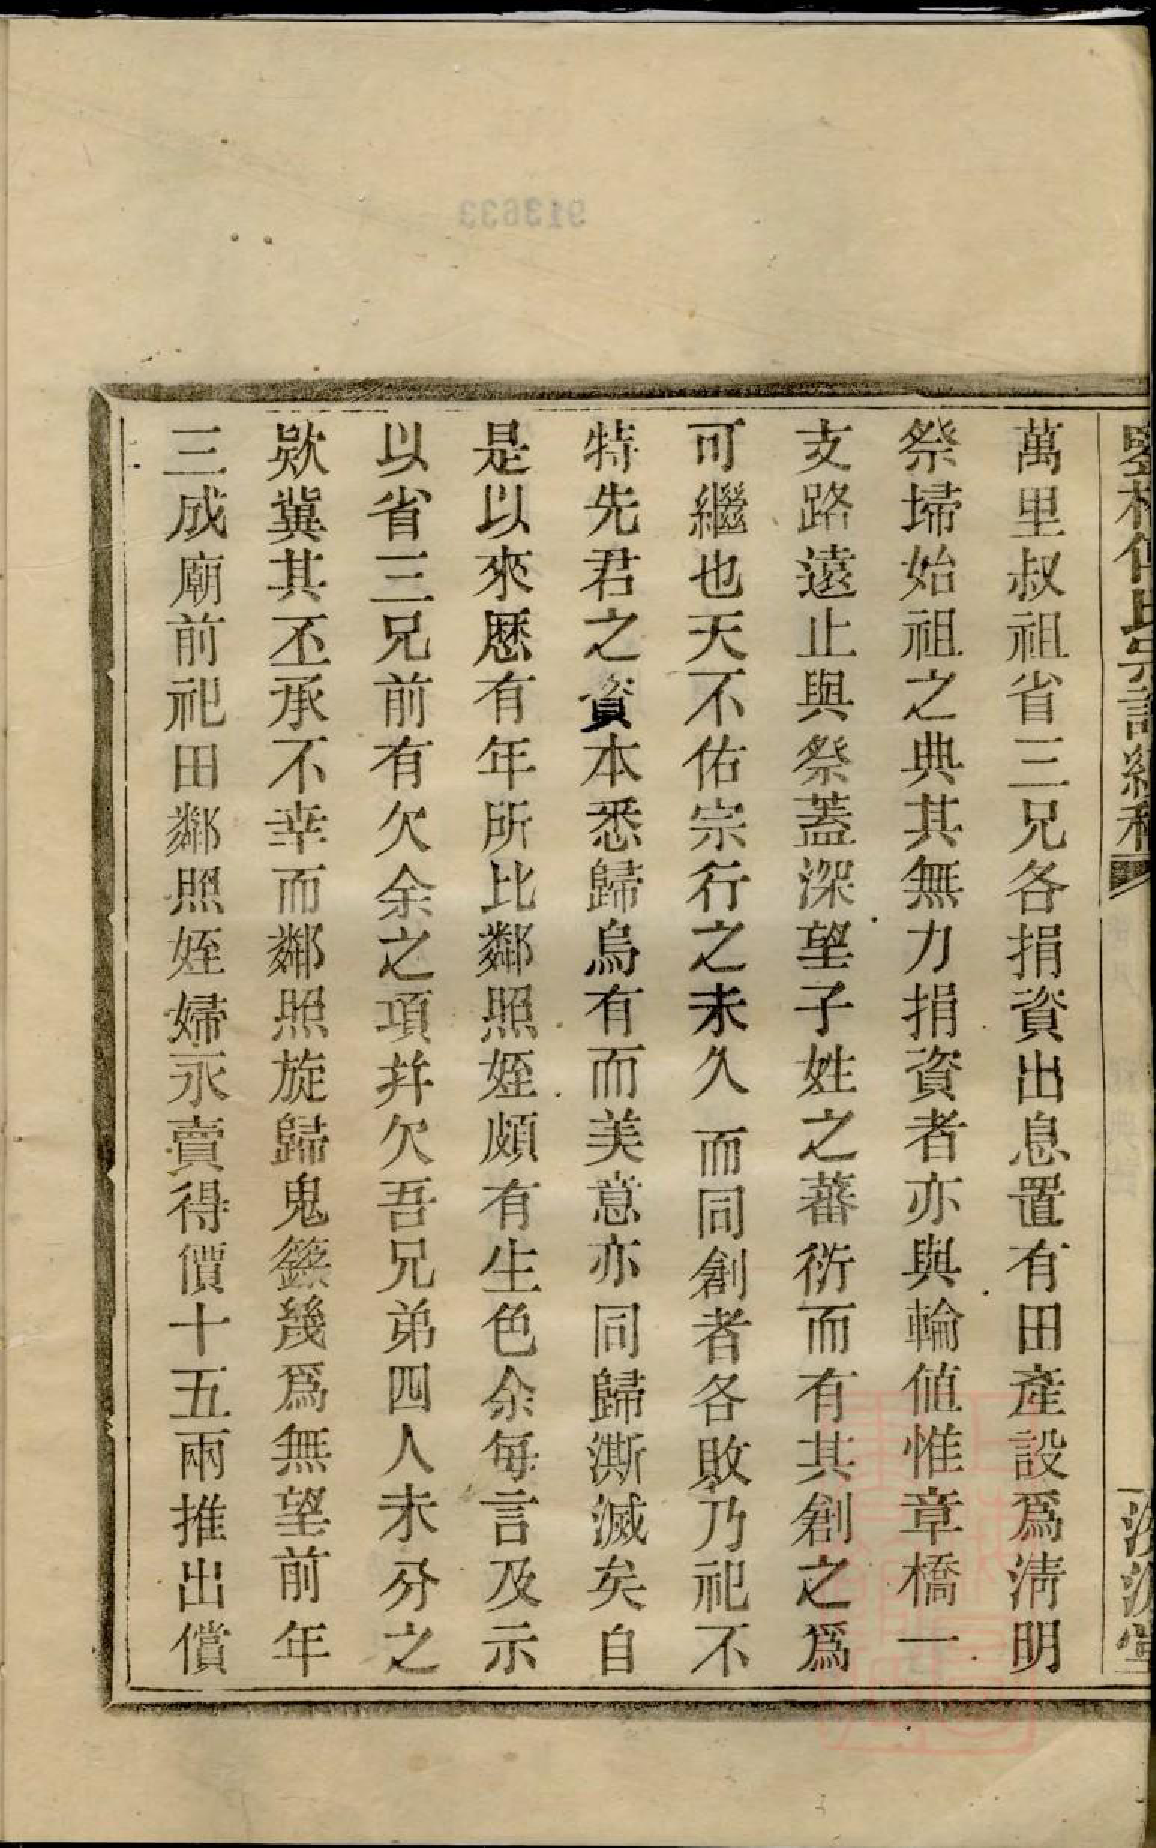 萬里叔祖省三兄各捐資出息置有田產設爲淸明
祭埽始祖之典其無力捐資者亦與輪值惟章橋一
支路遠止與祭蓋深望子姓之蕃衍而有其創之爲
可繼也天不佑宗行之未久而同創者各敗乃祀不
特先君之資本悉歸烏有而美意亦同歸澌滅矣自
是以來歷有年所比鄰照姪頗有生色余每言及示
以省三兄前有欠余之項幷欠吾兄弟四人未分之
款冀其丕承不幸而鄰照旋歸鬼籙幾爲無望前年
三成廟前祀田鄰照姪婦永賣得價十五兩推出償
913633